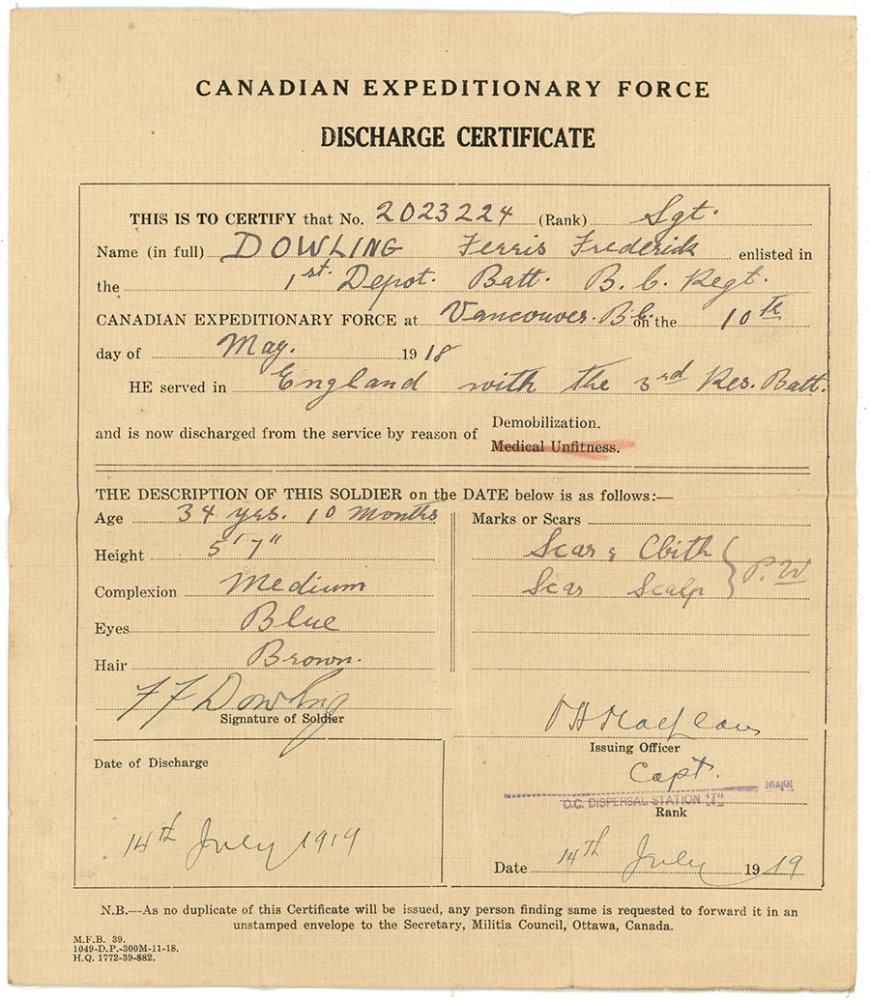 CANADIAN EXPEDITIONARY FORCE
DISCHARGE CERTIFICATE
THIS IS TO CERTIFY that No. 2023224 (Rank) Sgt.
Name (in full) DOWLING Ferris Frederick enlisted in
the 1st. Depot. Batt. B. C. Regt.
CANADIAN EXPEDITIONARY FORCE at Vancouver. B.C. on the 10th
day of May. 1918
HE served in England with the 3rd Res. Batt.
and is now discharged from the service by reason of Demobilization.
Medical Unfitness.
THE DESCRIPTION OF THIS SOLDIER on the DATE below is as follows:—
Age 34 yrs. 10 months
Height 5'7"
Complexion Medium
Eyes Blue
Hair Brown.
F F Dowling
Signature of Soldier
Marks or Scars
Scar
Scar Scalp P.W
Issuing Officer
Capt.
Major
O.C. DISPERSAL STATION "I"
Rank
Date of Discharge
14th July 1919
Date 14th July 1919
N.B.—As no duplicate of this Certificate will be issued, any person finding same is requested to forward it in an
unstamped envelope to the Secretary, Militia Council, Ottawa, Canada.
M.F.B. 39.
1049-D.P.-300M-11-18.
H.Q. 1772-39-882.